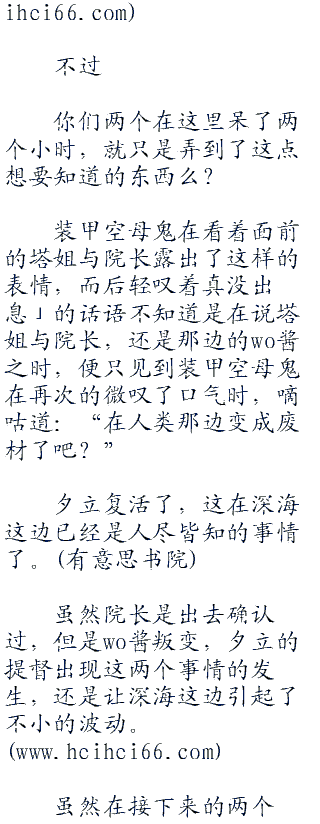 ihci66.com)
不过
你们两个在这里呆了两
个小时，就只是弄到了这点
想要知道的东西么？
装甲空母鬼在看着面前
的塔姐与院长露出了这样的
表情，而后轻叹着真没出
息」的话语不知道是在说塔
姐与院长，还是那边的wo酱
之时，便只见到装甲空母鬼
在再次的微叹了口气时，嘀
咕道：“在人类那边变成废
材了吧？”
夕立复活了，这在深海
这边已经是人尽皆知的事情
了。(有意思书院)
虽然院长是出去确认
过，但是wo酱叛变，夕立的
提督出现这两个事情的发
生，还是让深海这边引起了
不小的波动。
(www.hcihci66.com)
虽然在接下来的两个